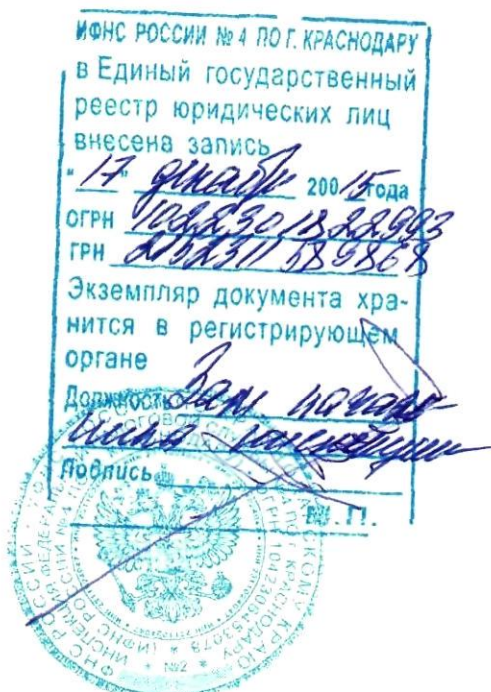 ИФНС РОССИИ № 4 ПО Г. КРАСНОДАРУ
в Единый государственный
реестр юридических лиц
внесена запись
"17" декабря 20015 года
ОГРН 1022301822993
ГРН 2152311589868
Экземпляр документа хра-
нится в регистрирующем
органе
Должность Зам началь
ника инспекции
Подпись
М.П.